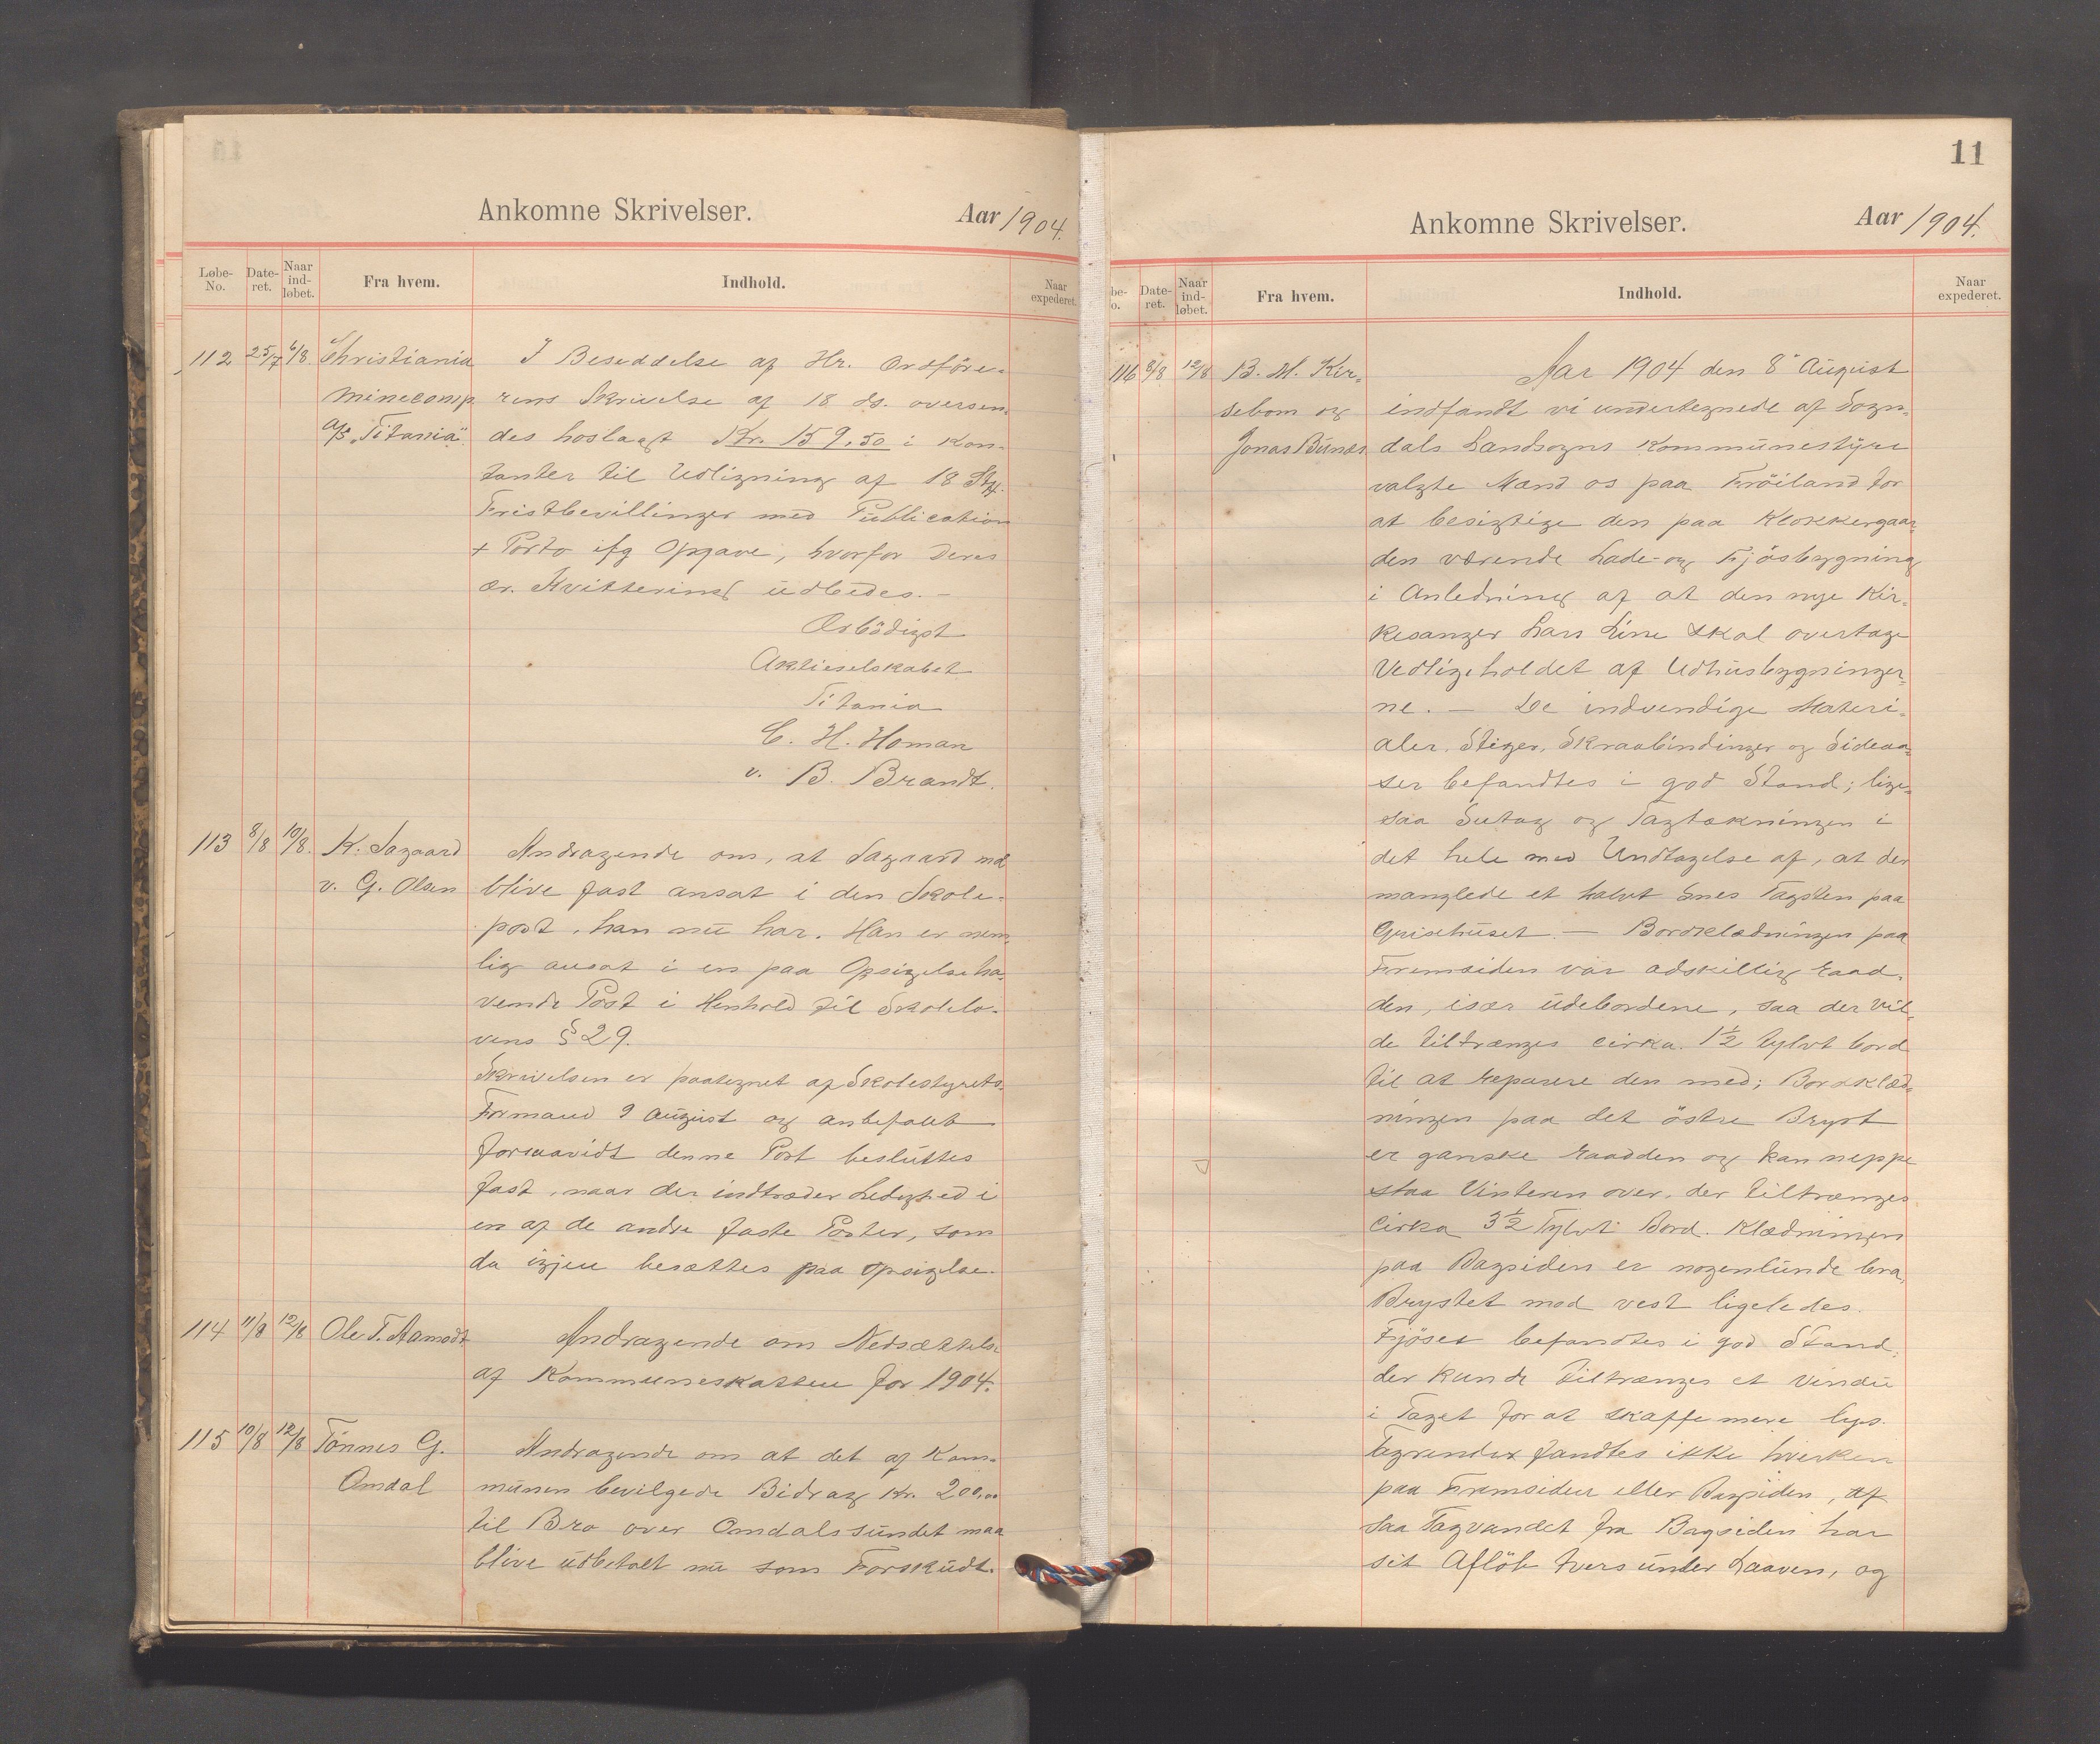 Ankomne Skrivelser. Aar 1904.
Løbe-No. Date-ret. Naar ind-løbet. Fra hvem. Indhold. Naar expederet.
112 25/7 6/8 Christiania Minecomp. A/S "Titania"
I Besiddelse af Hr. Ordføre-
rens Skrivelse af 18 ds. oversen-
des hoslagt Kr. 159,50 i Kon-
tanter til Udligning af 18 Stk.
Fristbevillinger med Publication
+ Porto ifg Opgave, hvorfor Deres
ær. Kvittering udbedes. –
Ærbödigst
Aktieselskabet
Titania
C. H. Homan
v. B. Brandt.
113 8/8 10/8. K. Sagaard v. G. Olsen
Andragende om, at Sagaard maa
blive fast ansat i den Skole-
post, han nu har. Han er nem-
lig ansat i en paa Opsigelse ha-
vende Post i Henhold til Skolelo-
vens § 29.
Skrivelsen er paategnet af Skolestyrets
Formand 9 August og anbefalet
forsaavidt denne Post besluttes
fast, naar der indtræder Ledighed i
en af de andre faste Poster, som
da igjen besættes paa Opsigelse.
114 11/8 12/8 Ole T. Aamodt
Andragende om Nedsættelse
af Kommuneskatten for 1904.
115 10/8 12/8 Tönnes G. Omdal
Andragende om at det af Kom-
munen bevilgede Bidrag Kr. 200,00
til Bro over Omdalssundet maa
blive udbetalt nu som Forskudt.
11
Ankomne Skrivelser. Aar 1904.
be-o. Date-ret. Naar ind-løbet. Fra hvem. Indhold. Naar expederet.
116 8/8 12/8 B. M. Kir-sebom og Jonas Bunes
Aar 1904 den 8' August
indfandt vi undertegnede af Sogn-
dals Landsogns Kommunestyre
valgte Mænd os paa Fröiland for
at besigtige den paa Klokkergaar-
den værende Lade- og Fjösbygning
i Anledning af at den nye Kir-
kesanger Lars Line skal overtage
Vedligeholdet af Udhusbygninger-
ne. – De indvendige Materi-
aler, Stiger, Skraabindinger og Sideaa-
ser befandtes i god Stand; lige-
saa Sutag og Tagtækningen i
det hele med Undtagelse af, at der
manglede et halvt Snes Tagsten paa
Grisehuset. – Bordklædningen paa
Fremsiden var adskillig raad-
den, især udebordene, saa der vil-
de tiltrænges cirka 1½ tylvt bord
til at reparere den med; Bordklæd-
ningen paa det östre Bryst
er ganske raadden og kan neppe
staa Vinteren over, der tiltrænges
Cirka 3½ Tylvt Bord. Klædningen
paa Bagsiden er nogenlunde bra,
Brystet mod vest ligeledes.
Fjöset befandtes i god Stand;
der kunde tiltrænges et Vindu
i Taget for at skaffe mere lys.
Tagrender fandtes ikke hverken
paa Fremsiden eller Bagsiden, af
saa Tagvandet fra Bagsiden har
sit Aflöb tvers under Laaven, og